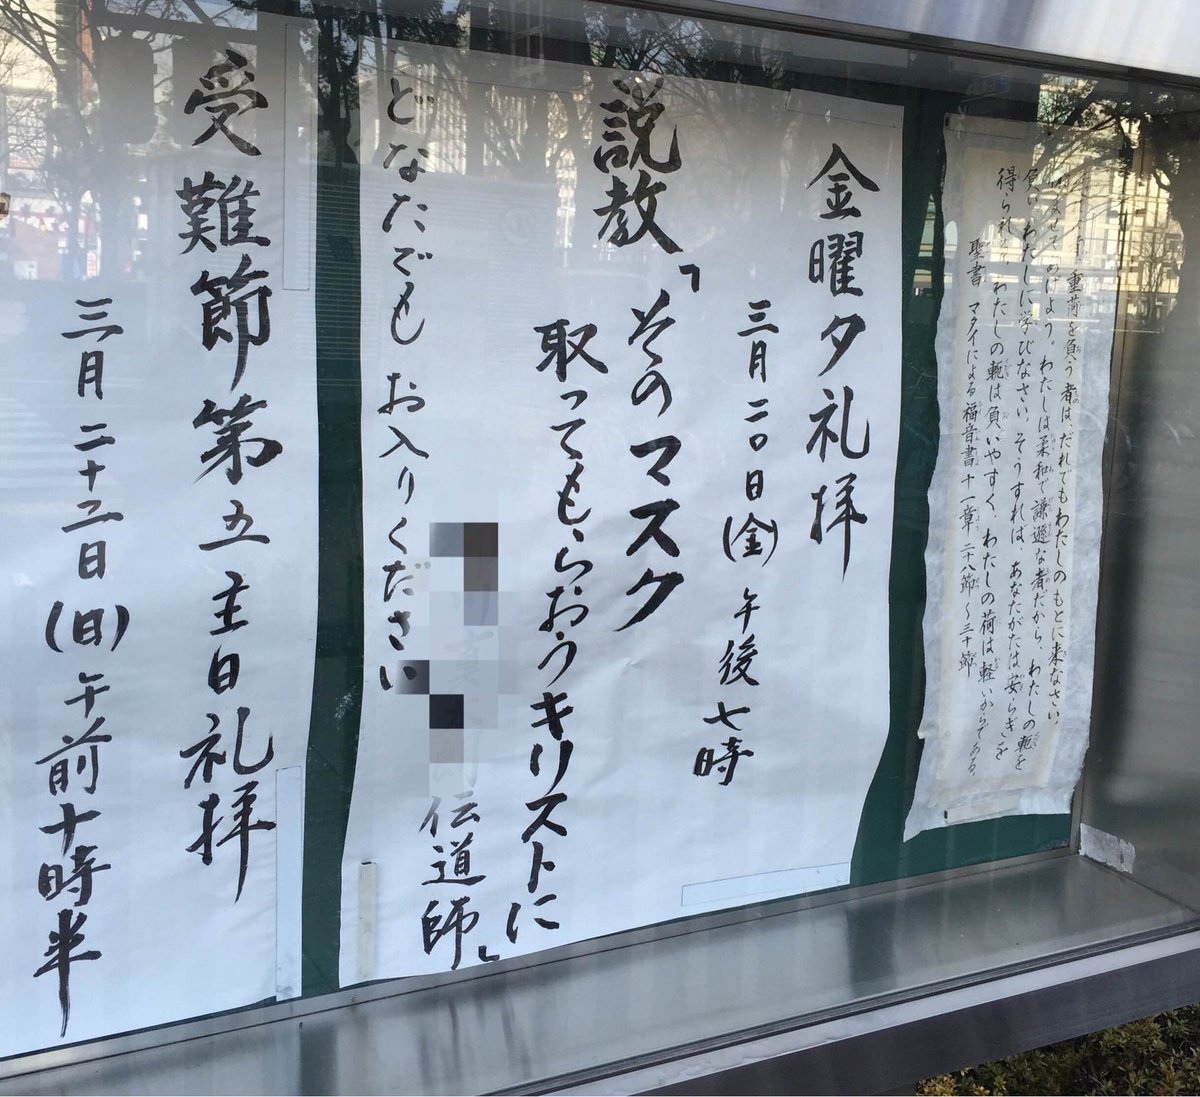 重荷を負う者は、だれでもわたしのもとに来なさい。
ませてあげよう。わたしは柔和で謙遜な者だから、わたしの軛を
負い、わたしに学びなさい。そうすれば、あなたがたは安らぎを
得られる。わたしの軛は負いやすく、わたしの荷は軽いからである。
聖書 マタイによる福音書 十一章 二十八節〜三十節
金曜夕礼拝
三月二〇日(金) 午後七時
説教「そのマスク
取ってもらおうキリストに」
伝道師
どなたでもお入りください
受難節第五主日礼拝
三月二十二日(日)午前十時半